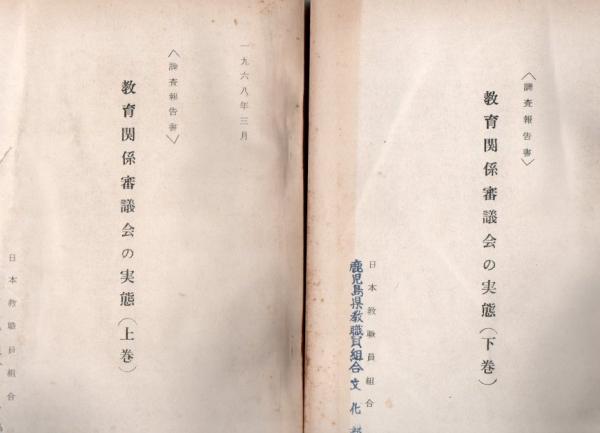 一九六八年三月
〈調査報告書〉
教育関係審議会の実態(上巻)
日本教職員組合
〈調査報告書〉
教育関係審議会の実態(下巻)
日本教職員組合
鹿児島県教職員組合文化部